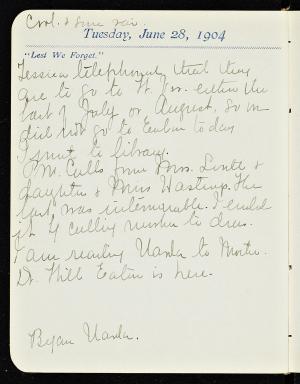 Cool. & fine rain.
Tuesday, June 28, 1904
"Lest We Forget."
Jessica telephoned that they
are to go to N. Y. either the
last of July or August, so we
did not go to today
I went to library.
P.M. Calls from Mrs. &
daughter & Miss Hastings. The
last was interminable. I ended
it by calling to dress.
I am reading Uarda to Mother.
Dr. Will Eaton is here.
Began Uarda.